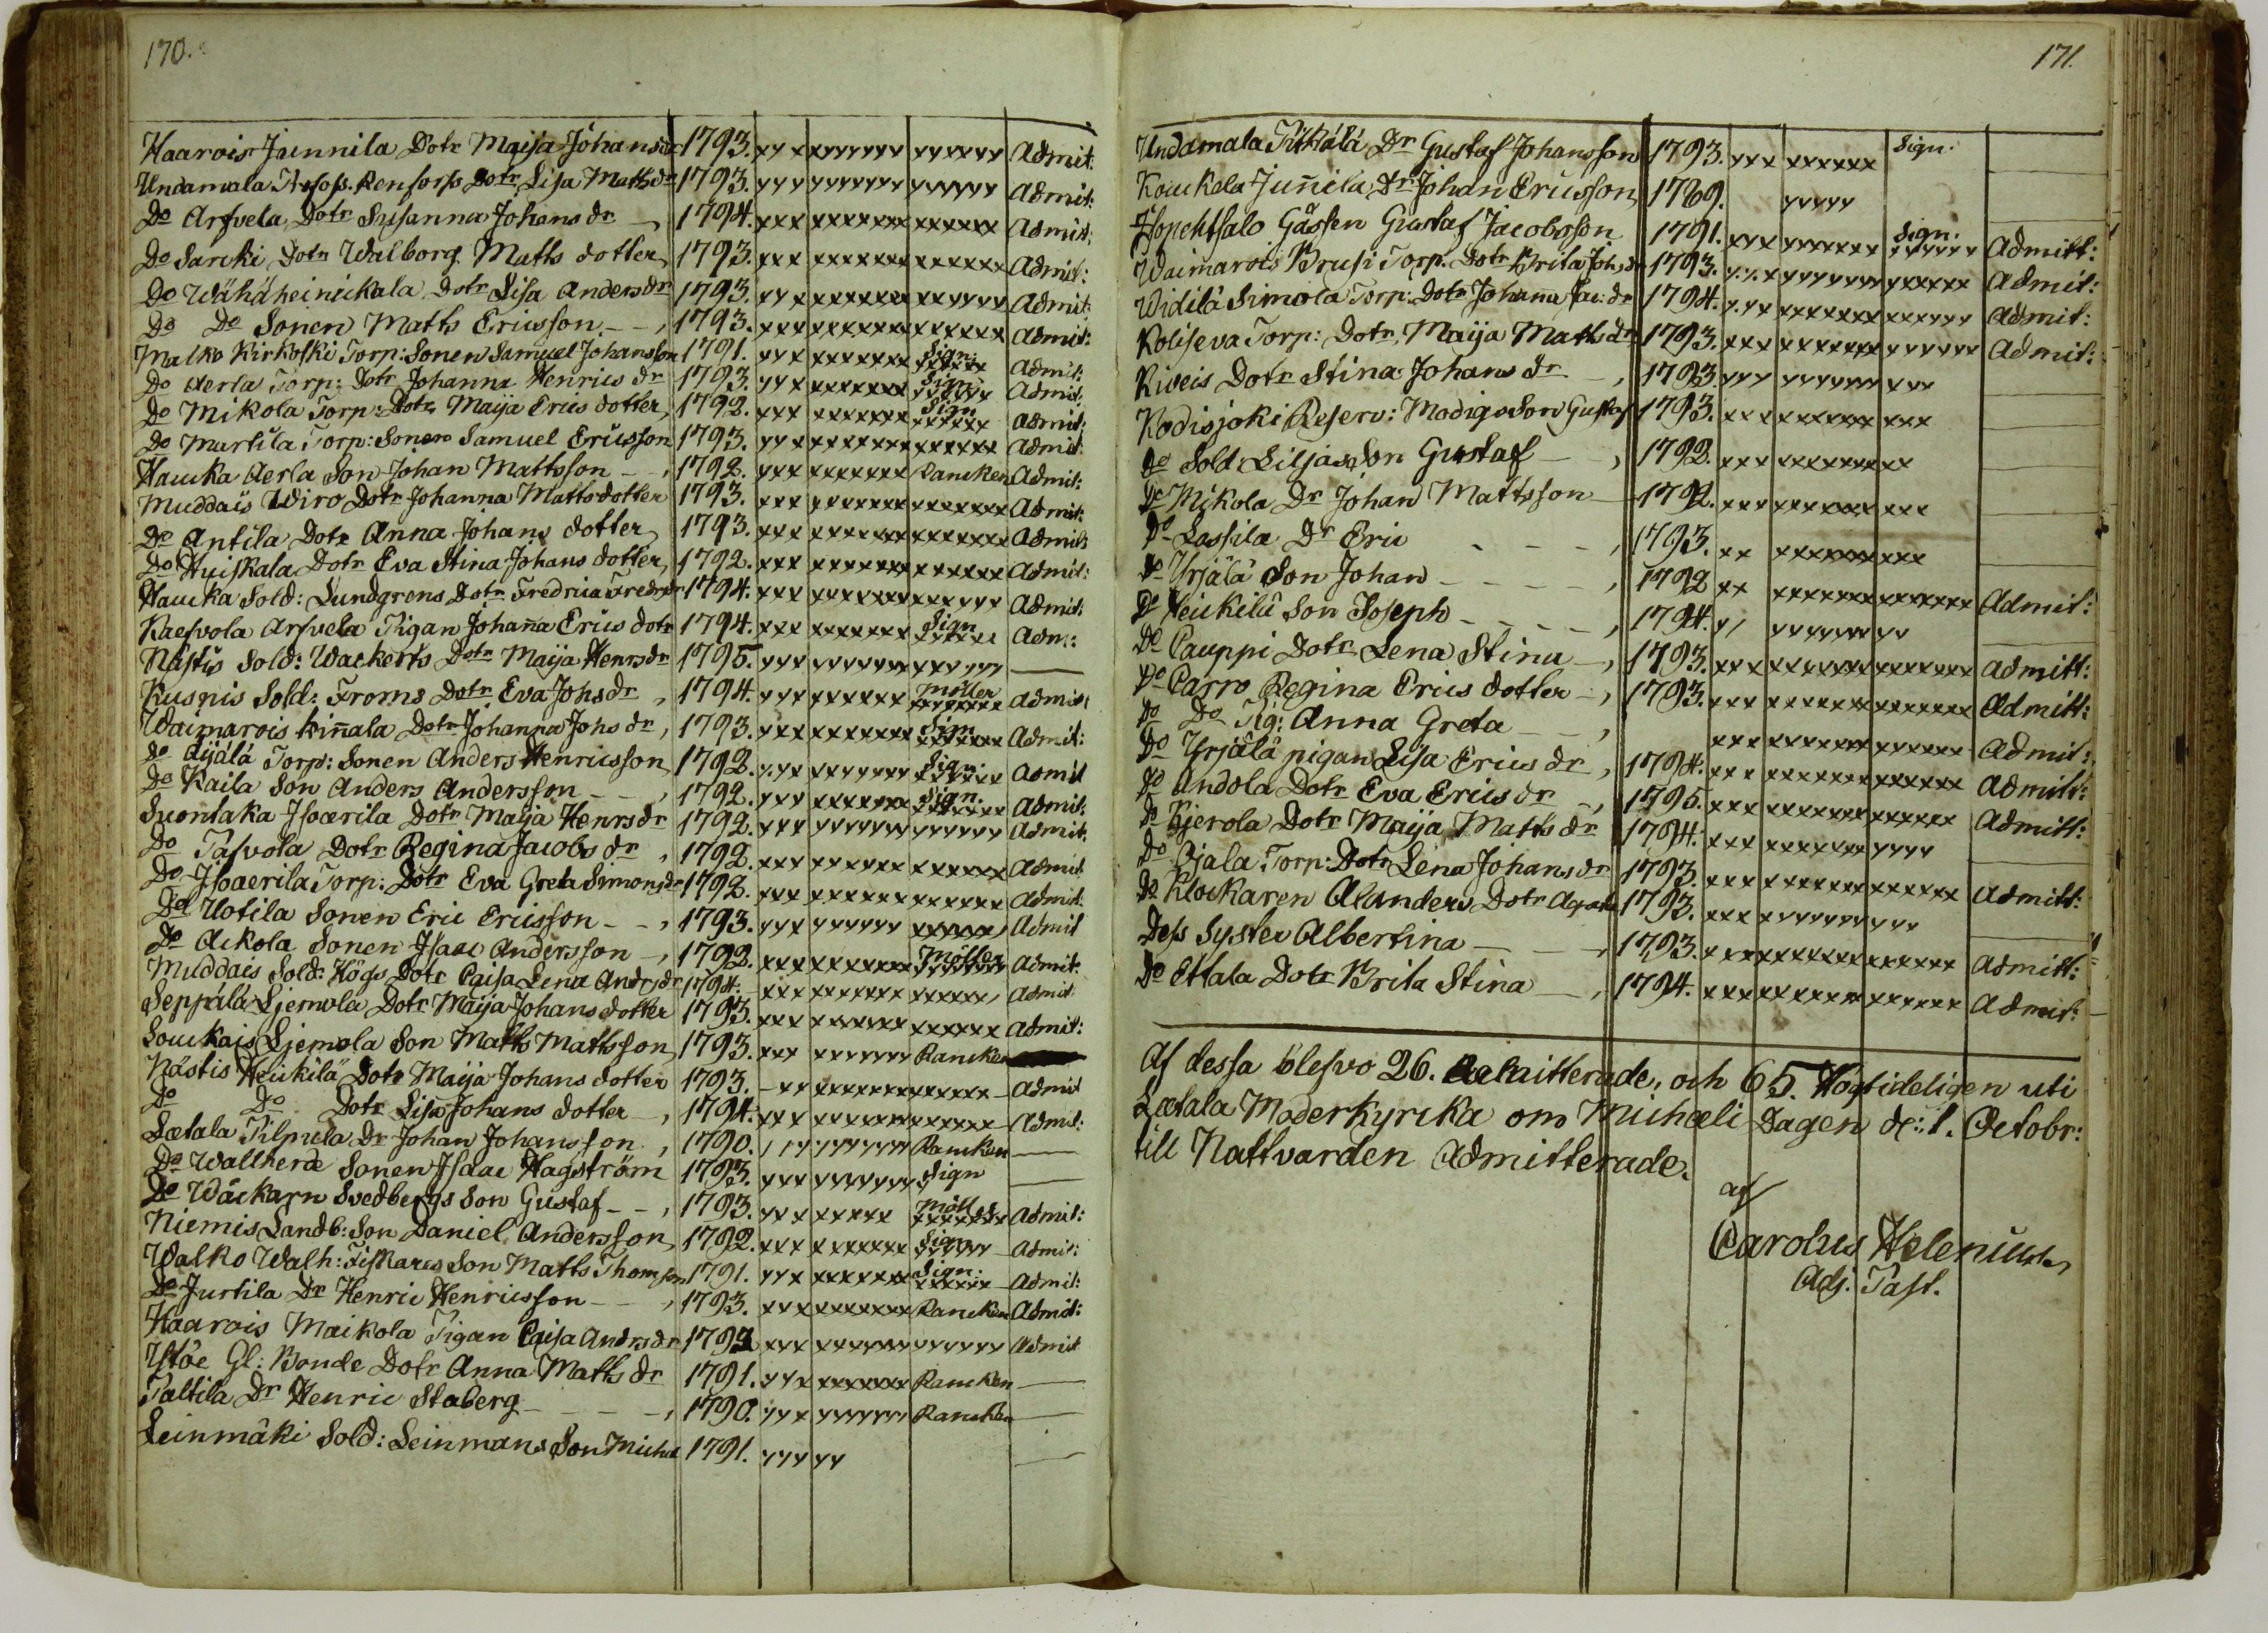 170.
Haarois Junnila Dotr Maija Johans dr 1793. xxx xxxxxxx xxxxxx Admit:
Undamala Rensors Dotr Lisa Matts dr 1793. xxx xxxxxxxx xxxxxx Admit:
Do Arfvela Dotr Susanna Johans dr 1794. xxx xxxxxxxx xxxxxx Admit:
Do Sarcki Dotr Walborg Matts dotter 1793. xxx xxxxxxx xxxxxxx Admit:
Do Wähäheinickala Dotr Lisa Anders dr 1793. xxx xxxxxxx xxxxxx Admit:
Do Do Sonen Matts Ericsson 1793. xxx xxxxxxx xxxxxxx Admit:
Malko Kirkoski Torp: Sonen Samuel Johansson 1791. xxx xxxxxxx Sign. xxxxxx Admit:
Do Aerla Torp: Dotr Johanna Henrics dr 1793. xxx xxxxxxx Sign. xxxxxx Admit:
Do Mikola Torp: Dotr Maija Erics dotter 1792. xxx xxxxxxx Sign xxxxxx Admit:
Do Martila Torp: Sonen Samuel Ericsson 1793. xxx xxxxxxx xxxxxx Admit:
Haucka Aerla Son Johan Mattsson 1792. xxx xxxxxxx Rancken Admit:
Muddais Wiro Dotr Johanna Matts dotter 1793. xxx xxxxxxx xxxxxxx Admit:
Do Antila Dotr Anna Johans dotter 1793. xxx xxxxxxx xxxxxxx Admit:
Do Huiskala Dotr Eva Stina Johans dotter 1792. xxx xxxxxxx xxxxxxx Admit:
Haucka Sold: Lundgrens Dotr Fredrica Fredr dr 1794. xxx xxxxxxx xxxxxx Admit:
Raesvola Arfvela Pigan Johanna Erics dotr 1794. xxx xxxxxxx Sign xxxxxx Adm::
Nästis Sold: Wackerts Dotr Maija Henrs dr 1795. xxx xxxxxxx xxxxxx —
Kusnis Sold: Froms Dotr Eva Johs dr 1794. xxx xxxxxx Möller xxxxxxx Admit:
Waimarois Kiñala Dotr Johanna Johs dr 1793. xxx xxxxxxx Sign xxxxxx Admit:
Do Äijälä Torp: Sonen Anders Henricsson 1792. xxx xxxxxxx Sign. xxxxxx Admit
Do Kaila Son Anders Andersson 1792. xxx xxxxxxx Sign. xxxxxx Admit:
Suontaka Isoaerila Dotr Maija Henrs dr 1792. xxx xxxxxxx xxxxxxx Admit.
Do Tasvola Dotr Regina Jacobs dr 1792. xxx xxxxxxx xxxxxxx Admit
Do Isoaerila Torp: Dotr Eva Greta Simons dr 1792. xxx xxxxxxx xxxxxxx Admit.
Do Uotila Sonen Eric Ericsson 1793. xxx xxxxxxx xxxxxx Admit
Do Ackola Sonen Isaac Andersson 1792. xxx xxxxxxx Möller xxxxxxx Admit.
Muddais Sold: Högs Dotr Caisa Lena Andrs dr 1794. xxx xxxxxxx xxxxxx Admit
Seppälä Ljemola Dotr Maija Johans dotter 1793. xxx xxxxxxx xxxxxx Admit:
Souckais Ljemola Son Matts Mattsson 1793. xxx xxxxxxx Rancken
Nästis Heickilä Dotr Maija Johans dotter 1793. xx xxxxxxx xxxxxx Admit
Do Do Dotr Lisa Johans dotter 1794. xxx xxxxxxx xxxxxx Admit:
Letala Pilpula Dr Johan Johansson 1790. xxx xxxxxxx Rancken —
Do Sonen Isaac Hagström 1793. xxx xxxxxxx Sign —
Do Wäckarn Svedbergs Son Gustaf 1793. xxx xxxxx Möller xxxxxxx Admit:
Niemis Landb: Son Daniel Andersson 1792. xxx xxxxxxx Sign xxxxxx Admit:
Walko Walh: Fiskares Son Matts Thomsson 1791. xxx xxxxxxx Sign. xxxxxx Admit:
Do Jurtila Dr Henric Henricsson 1793. xxx xxxxxxx Rancken Admit:
Haarois Maikola Pigan Caisa Andrs dr 1793 xxx xxxxxxx xxxxxxx Admit
Ystöe Gl: Bonde Dotr Anna Matts dr 1791. xxx xxxxxxx Rancken —
Paltila Dr Henric Staberg 1790. xxx xxxxxxx Rancken —
Leinmäki Sold: Leinmans Son Michel 1791. xxx xx —
171.
Undamala Pitkälä Dr Gustaf Johansson 1793. xxx xxxxxx Sign. —
Kouckela Juñila Dr Johan Ericsson 1789. xxxxx —
Gåssen Gustaf Jacobsson 1791. xxx xxxxxxx Sign. xxxxxx Admitt:
Waimarois Brusi Torp. Dotr Brita Johs dr 1793. xxx xxxxxxx xxxxxx Admit:
Widilä Simola Torp: Dotr Johanna Jac: dr 1794. xxx xxxxxxx xxxxxx Admit:
Koliseva Torp: Dotr Maija Matts dr 1793. xxx xxxxxxx xxxxxx Admit:
Kiveis Dotr Stina Johans dr 1793. xxx xxxxxxx xxx —
Kodisjoki Reserv: Modigs Son Gustaf 1793. xxx xxxxxxx xxx —
Do Sold: Liljas Son Gustaf 1792. xxx xxxxxxx xx —
Do Mikola Dr Johan Mattsson 1792. xxx xxxxxxx xxx —
Do Lassila Dr Eric 1793. xx xxxxxxx xxx —
Do Yrjälä Son Johan 1792 xx xxxxxxx xxxxxxx Admit:
Do Heickilä Son Joseph 1794. xx xxxxxxx xx —
Do Pauppi Dotr Lena Stina 1793. xxx xxxxxxx xxxxxxx Admitt:
Do Parro Regina Erics dotter 1793. xxx xxxxxxx xxxxxxx Admitt:
Do Do Pig: Anna Greta xxx xxxxxxx xxxxxx Admit:
Do Yrjälä pigan Lisa Erics dr 1794. xxx xxxxxxx xxxxxx Admitt:
Do Andola Dotr Eva Erics dr 1795. xxx xxxxxxx xxxxxx Admitt:
Do Kjerola Dotr Maija Matts dr 1794. xxx xxxxxxx xxxx —
Do Ojala Torp: Dotr Lena Johans dr 1793. xxx xxxxxxx xxxxxx Admitt:
Do Klockaren Alanders Dotr Agata 1793. xxx xxxxxxx xxx —
Dess Syster Albertina 1793. xxx xxxxxxx xxxxxx Admitt:
Do Ettala Dotr Brita Stina 1794. xxx xxxxxxx xxxxxx Admit:
Af dessa blefvo 26. och 65. Högtideligen uti
Letala Moderkyrka om Michaeli Dagen d: 1. Octobr:
till Nattvarden Admitterade.
af
Carolus Helenius
Adj. Past.